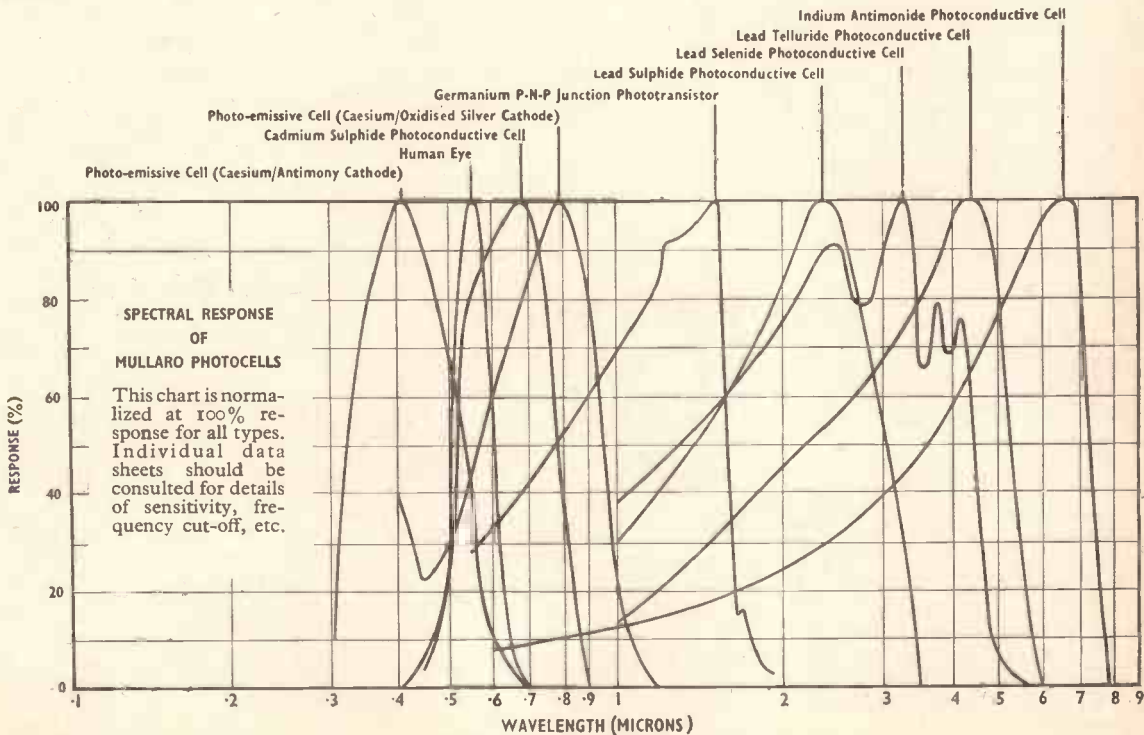 Indium Antimonide Photoconductive Cell
Lead Telluride Photoconductive Cell
Lead Selenide Photoconductive Cell
Lead Sulphide Photoconductive Cell
Germanium P-N-P Junction Phototransistor
Photo-emissive Cell (Caesium/Oxidised Silver Cathode)
Cadmium Sulphide Photoconductive Cell
Human Eye
Photo-emissive Cell (Caesium/Antimony Cathode)
SPECTRAL RESPONSE
OF
MULLARO PHOTOCELLS
This chart is norma-
lized at 100% re-
sponse for all types.
Individual data
sheets should be
consulted for details
of sensitivity, fre-
quency cut-off, etc.
RESPONSE (%)
100
80
60
40
20
0
·1 ·2 ·3 ·4 ·5 ·6 ·7 ·8 ·9 1 2 3 4 5 6 7 8 9
WAVELENGTH (MICRONS)